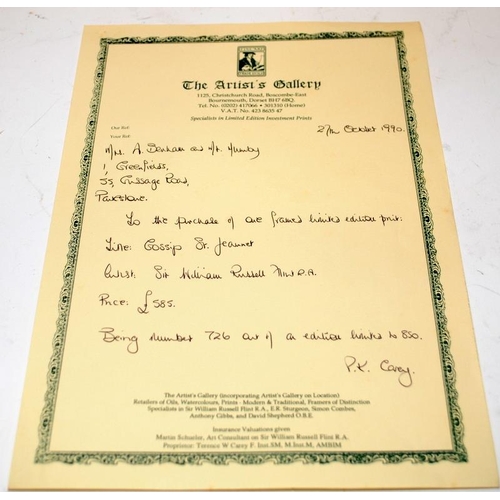 The Artist's Gallery
1125, Christchurch Road, Boscombe-East
Bournemouth, Dorset BH7 6BQ.
Tel. No. (0202) 417066 • 301310 (Home)
V.A.T. No. 423 8635 47
Specialists in Limited Edition Investment Prints
Our Ref
Your Ref
27th October 1990.
A. Denham and
1 Greenfields,
55, Cussage Road,
Parkstone.
To the purchase of one framed limited edition print:
Title: Gossip St. Jeannet
Artist: Sir William Russell Flint R.A.
Price: £585.
Being number 726 out of an edition limited to 850.
P.K. Carey.
The Artist's Gallery (incorporating Artist's Gallery on Location)
Retailers of Oils, Watercolours, Prints - Modern & Traditional, Framers of Distinction
Specialists in Sir William Russell Flint R.A., E.R. Sturgeon, Simon Combes,
Anthony Gibbs, and David Shepherd O.B.E.
Insurance Valuations given
Martin Schaefer, Art Consultant on Sir William Russell Flint R.A.
Proprietor: Terence W Carey F. Inst.SM, M.Inst.M, AMBIM